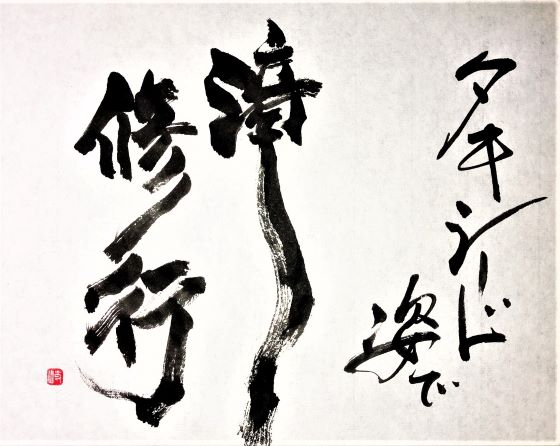 タキシード
姿で
滝
修行